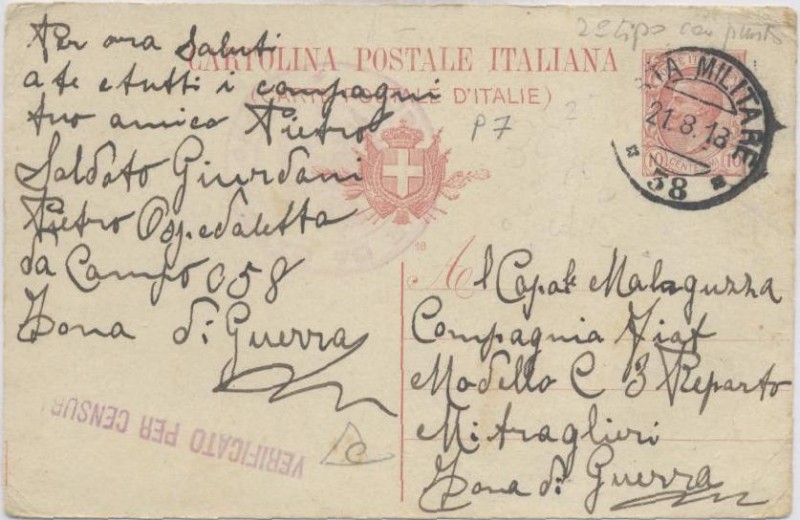 2° tipo con punto
CARTOLINA POSTALE ITALIANA
(CARTE POSTALE D'ITALIE)
Per ora Saluti
a te e tutti i compagni
tuo amico Pietro
Soldato Giurdani
Pietro Ospedaletta
da Campo 058
Zona di Guerra
P7
POSTA MILITARE
21.8.18
58
10 CENTESIMI 10
18
Al Capale Malaguzza
Compagnia Fiat
Modello C 3 Reparto
Mitraglieri
Zona di Guerra
VERIFICATO PER CENSUR